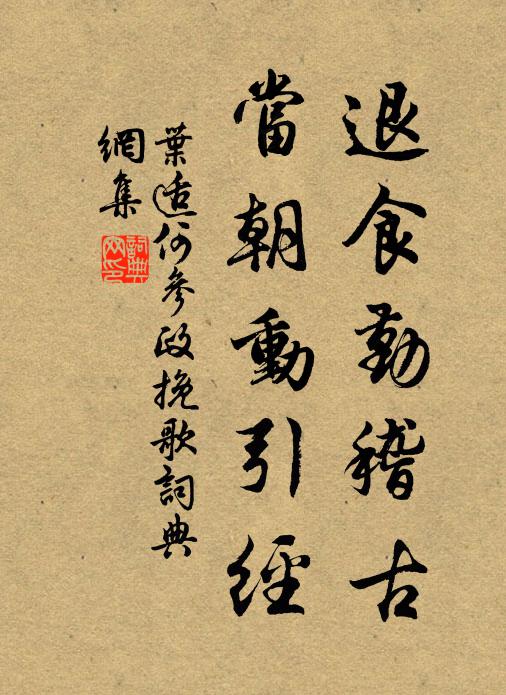 退食勤稽古
當朝動引經
葉適何參政挽歌詞典
網集
詞典網印